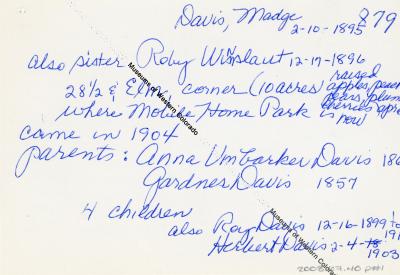 Davis, Madge 879
2-10-1895
also sister Roby Winslaut 12-17-1896
28 1/2 & Elm, corner (10 acres) raised
apples, peach
pears, plum
cherries, apri
where Mobile Home Park is now
came in 1904
parents: Anna Umbarker Davis 186
Gardner Davis 1857
4 children
also Roy Davis 12-16-1899 to
191
Herbert Davis 2-4-18
1903
Museums of Western Colorado
Museums of Western Colorado